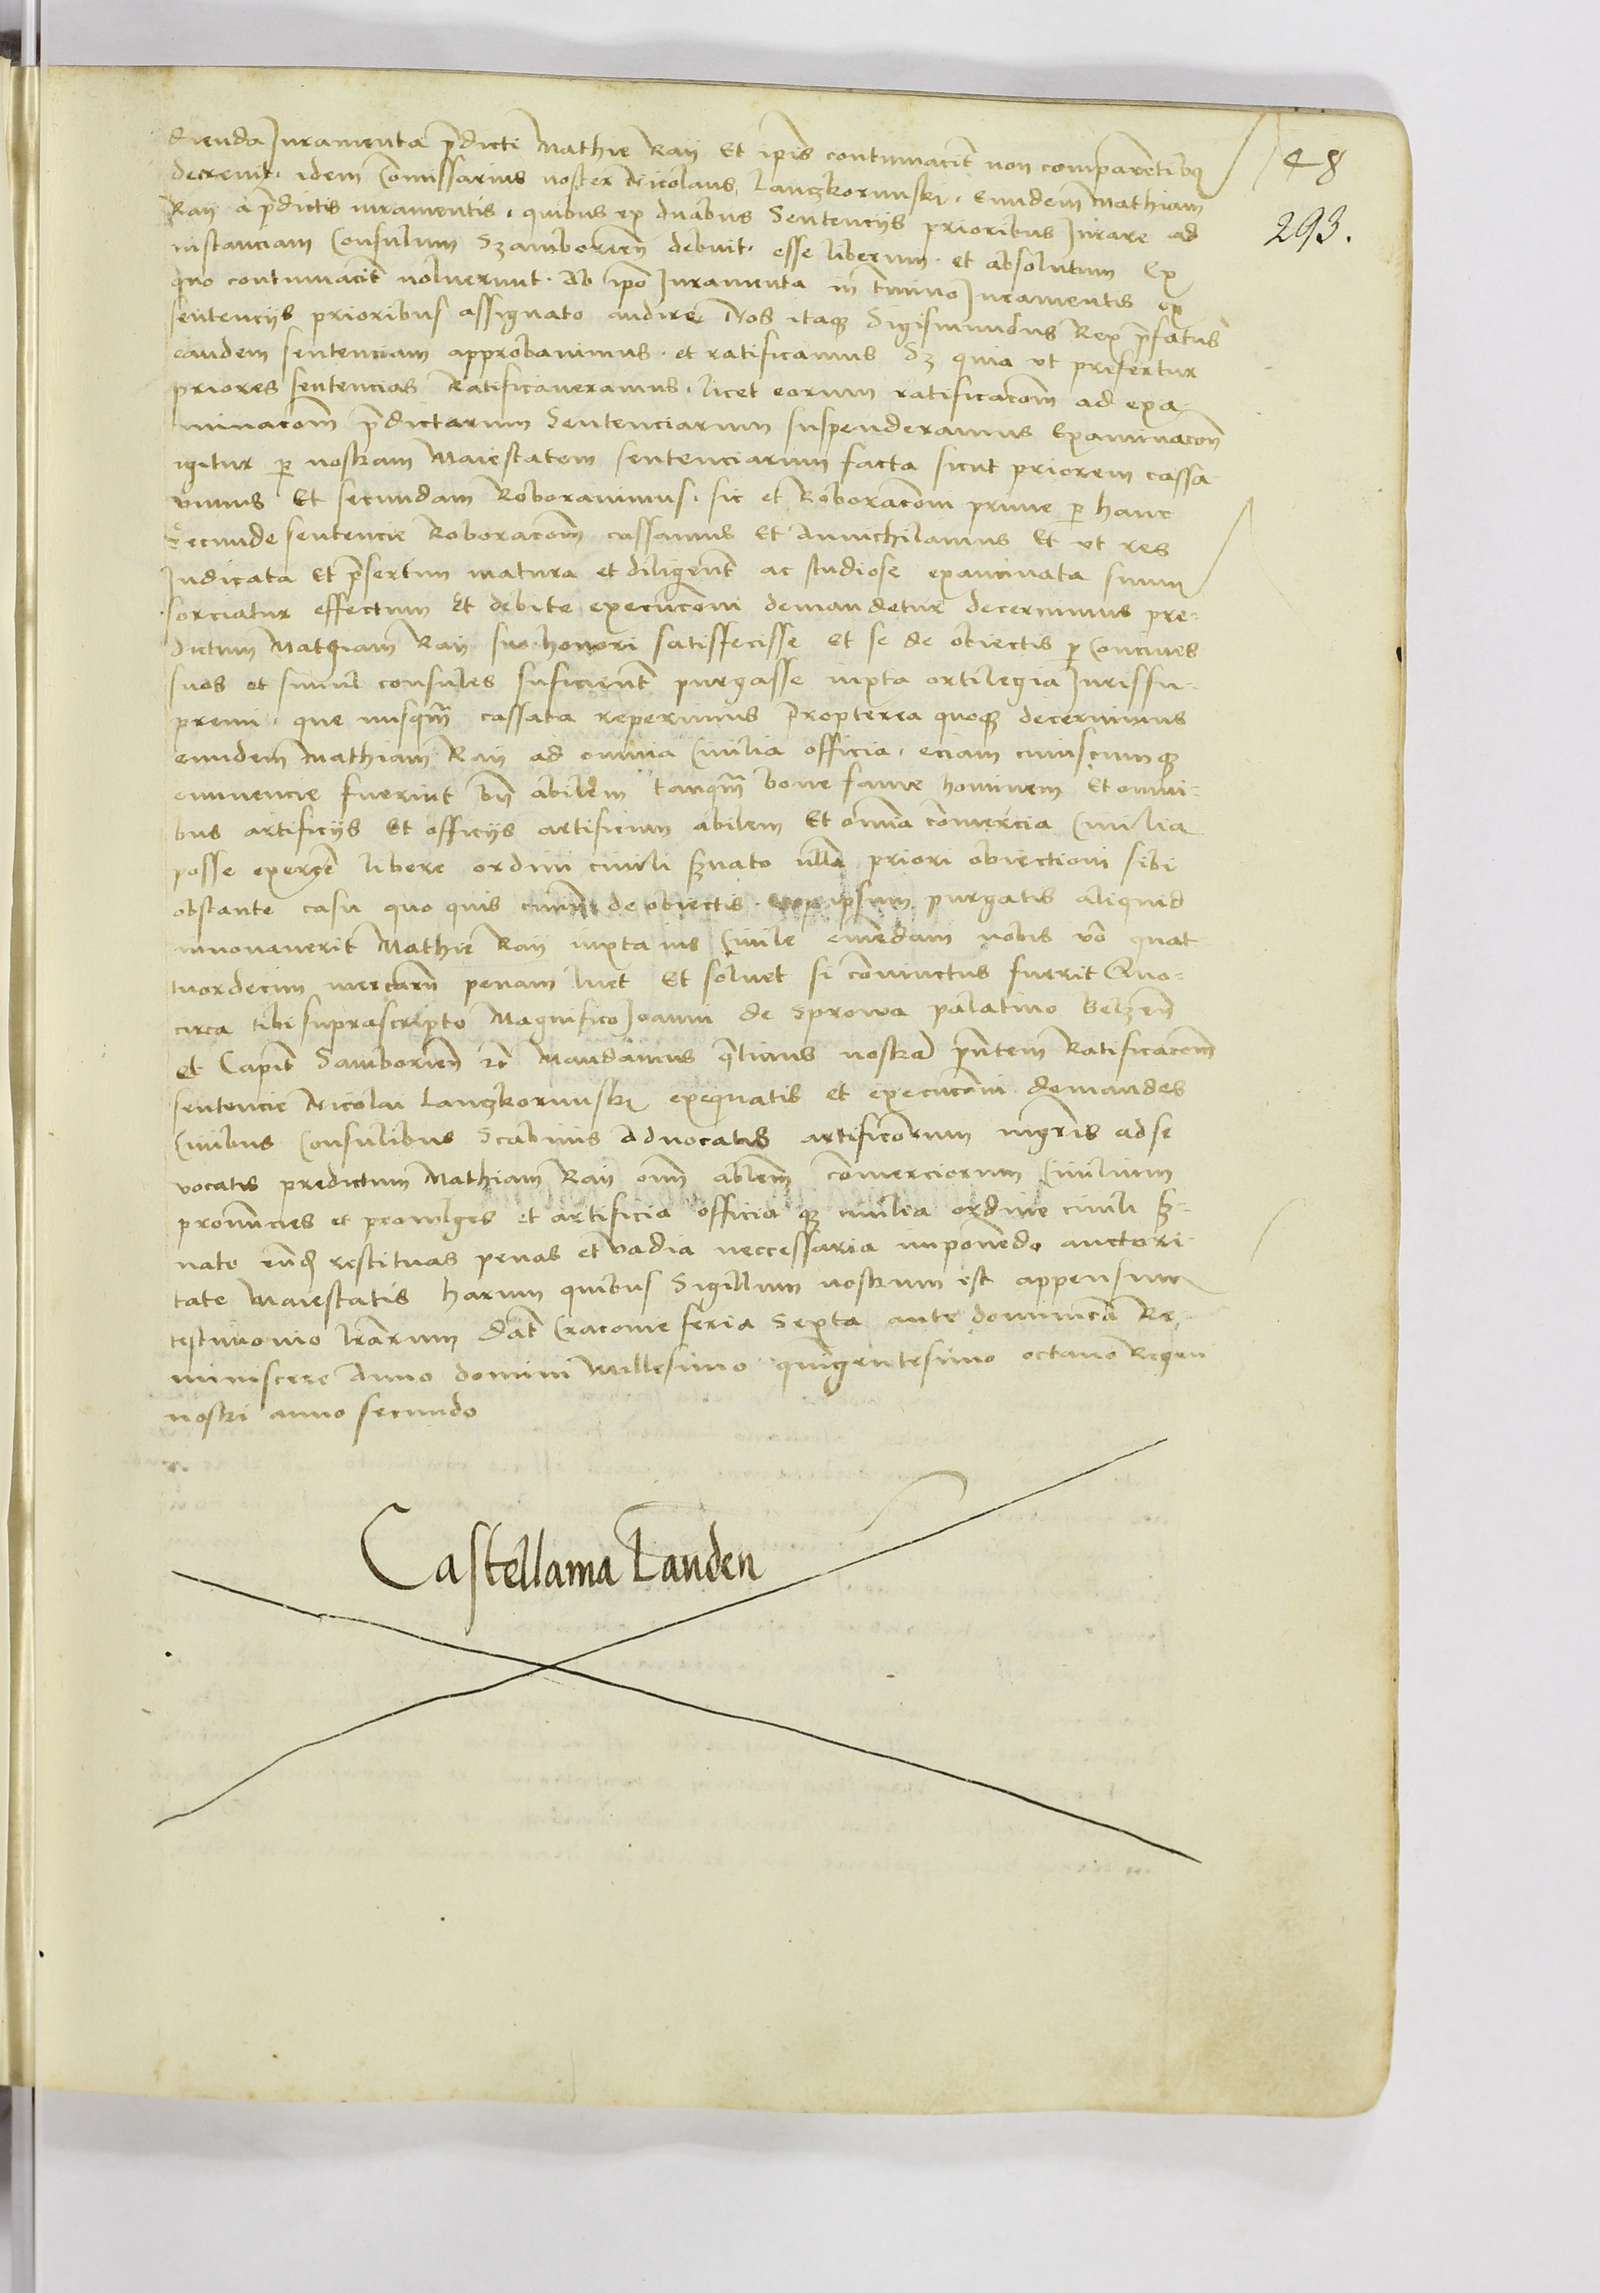 dienda Juramenta p̄dicti Mathie Raÿ Et ip̄is contumacit̄ non comparentibꝫ
decrevit. idem Com̄issarius noster Nicolaus Lanczkorunski. Eundem Mathiam
Raÿ a p̄dictis iuramentis. quibus ex duabus Sentencÿs prioribus Jurare ad
instanciam Consulum Szamborien̄ debuit. esse liberum. et absolutum Ex
quo contumacit̄ noluerunt. Ab ip̄o Juramenta in t̄mino Juramentis ex
sentencÿs prioribus assignato audire Nos itaqꝫ Sigismundus Rex p̄fatus
eandem sentenciam approbavimus. et ratificamus Sꝫ quia ut prefertur
priores sentencias Ratificaueramus. licet eorum ratificac̄om ad exa
minac̄om p̄dictarum Sentenciarum suspenderamus Examinac̄on
igitur ꝑ nostram Maiestatem sentenciarum facta sicut priorem cassa
vimus Et secundam Roboravimus. sic et Roborac̄om prime ꝑ hanc
secunde sentencie Roborac̄om cassamus Et Annichilamus Et ut res
Judicata Et p̄sertim matura et diligent̄ ac studiose examinata suum
sorciatur effectum Et debite execuc̄oni demandetur decernimus pre-
dictum Mathiam Raÿ suo honori satisfecisse et se de obiectis ꝑ Concives
suos et simul consules suficient̄ purgasse iuxta ortilegia Jurissu-
premi. que nusq̄m cassata reperimus Propterea quoqꝫ decernimus
eundem Mathiam Raÿ ad omnia Civilia officia. eciam cuiuscumqꝫ
eminencie fuerint bn̄ abilem tanq̄m bone fame hominem Et omni-
bus artificÿs Et officÿs artificum abilem Et om̄ia com̄ercia Civilia
posse exerce͂ libere ordini civili s̄uato ulla priori obiectioni sibi
obstante casu quo quis civiū de obiectis ipsum purgatis aliquid
innovaverit Mathie Raÿ iuxta ius Civile emendam nobis v̄o quat
tuordecim mercaru̅ penam luet Et solvet si convinctus fuerit Quo-
circa tibi suprascripto Magnifico Joanni de Sprowa palatino Belzen̄
et Capit̄ Samborien̄ ꝛc̄ Mandamus q̄tinus nostra p̄ntem Ratificac̄om
sentencie Nicolai Lanczkorunski exequatis et execuc̄oni demandes
Civibus Consulibus Scabinis Advocatis artificorum mḡris ad se
vocatis predictum Mathiam Raÿ om̄ ablem̄ com̄erciorum Civilium
pronuncies et promlges et artificia officia qꝫ civilia ordine civili s̄-
uato eund̄ restituas penas et vadia neccessaria imponendo auctori-
tate Maiestatis harum quibus Sigillum nostrum est appensum
testimonio l̄rarum Dat̄ Cracovie feria Sexta ante dominicā Re
miniscere Anno domini Millesimo quigentesimo octavo Regni
nostri anno secundo
Castellania Landen
48
293.